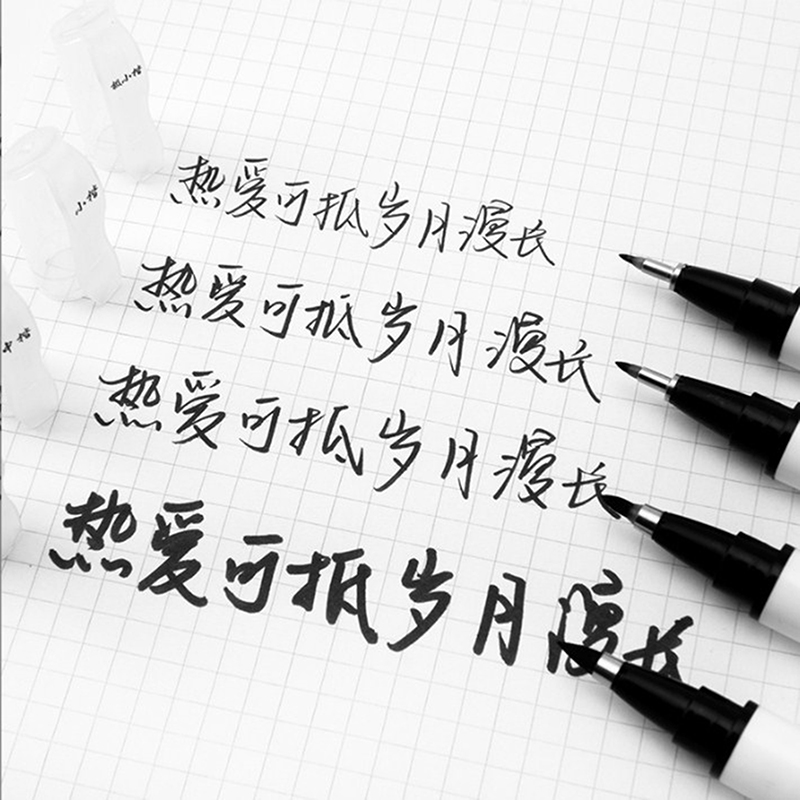 极小楷
小楷
热爱可抵岁月漫长
热爱可抵岁月漫长
中楷
热爱可抵岁月漫长
热爱可抵岁月漫长